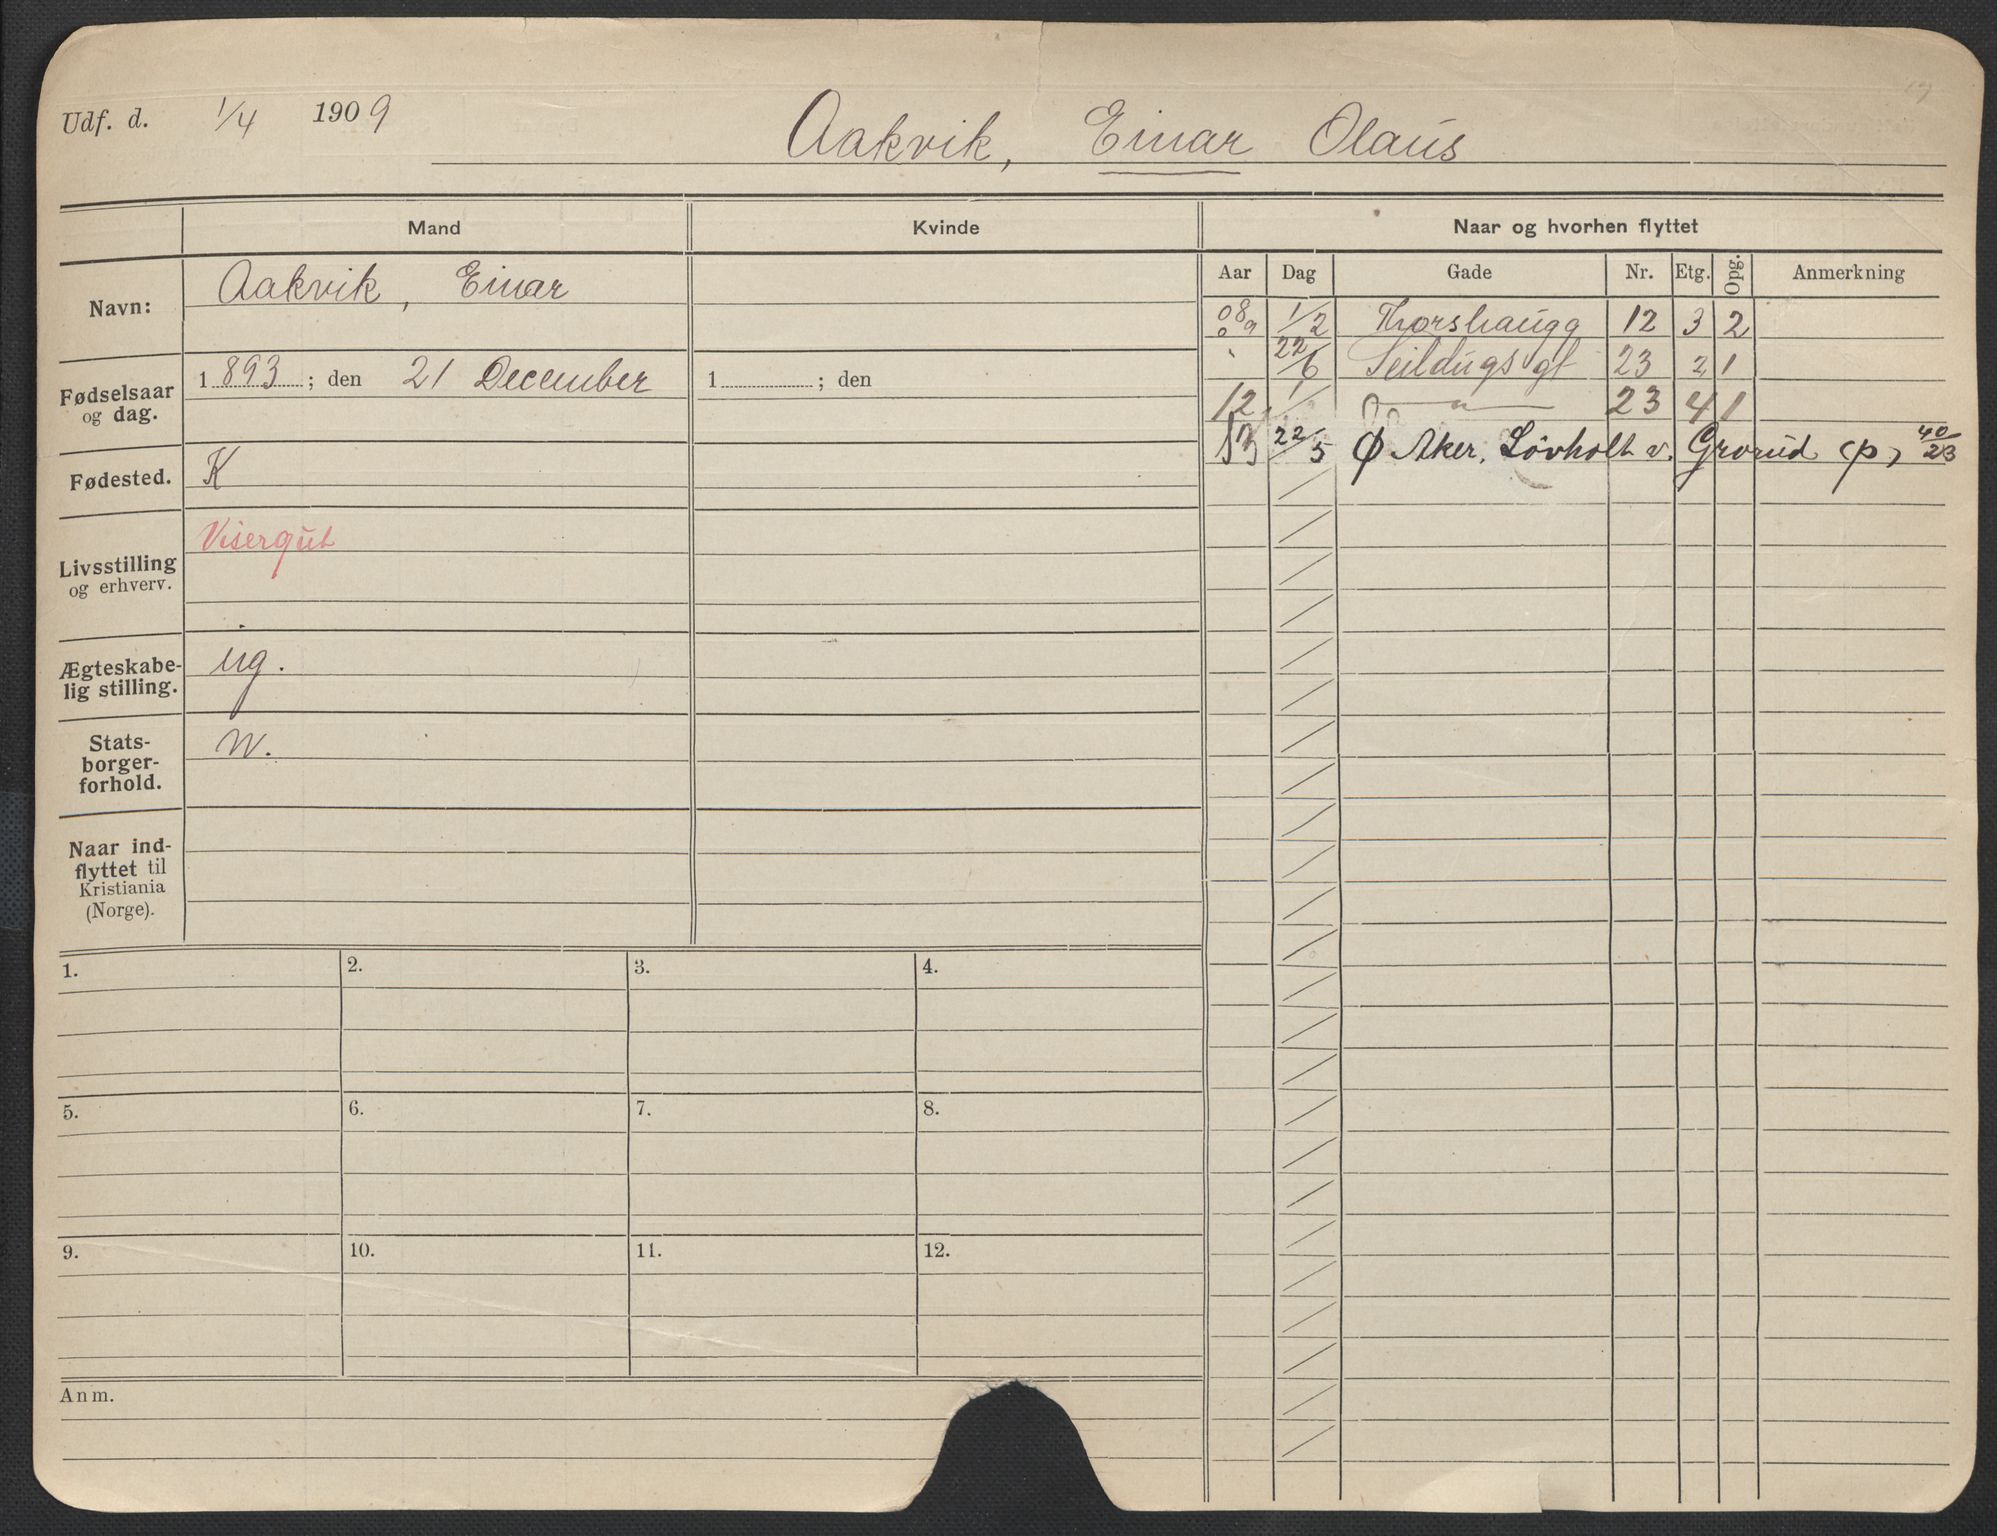 Udf. d. 1/4 1909
Aakvik, Einar Olaus
Mand
Kvinde
Naar og hvorhen flyttet
Navn:
Aakvik, Einar
Fødselsaar og dag.
1893; den 21 December
1 ; den
Fødested.
K
Livsstilling og erhverv.
Visergut
Ægteskabe-
lig stilling.
ug.
Stats-
borger-
forhold.
N.
Naar ind-
flyttet til
Kristiania
(Norge).
Aar Dag Gade Nr. Etg. Opg. Anmerkning
08 1/2 Thorshaugg 12 3 2
09
" 22/6 Seildugs gt 23 2 1
12 1/ — " — 23 4 1
13 22/5 Ø Aker, Lövholt v. Grorud (p) 40/23
1. 2. 3. 4.
5. 6. 7. 8.
9. 10. 11. 12.
Anm.